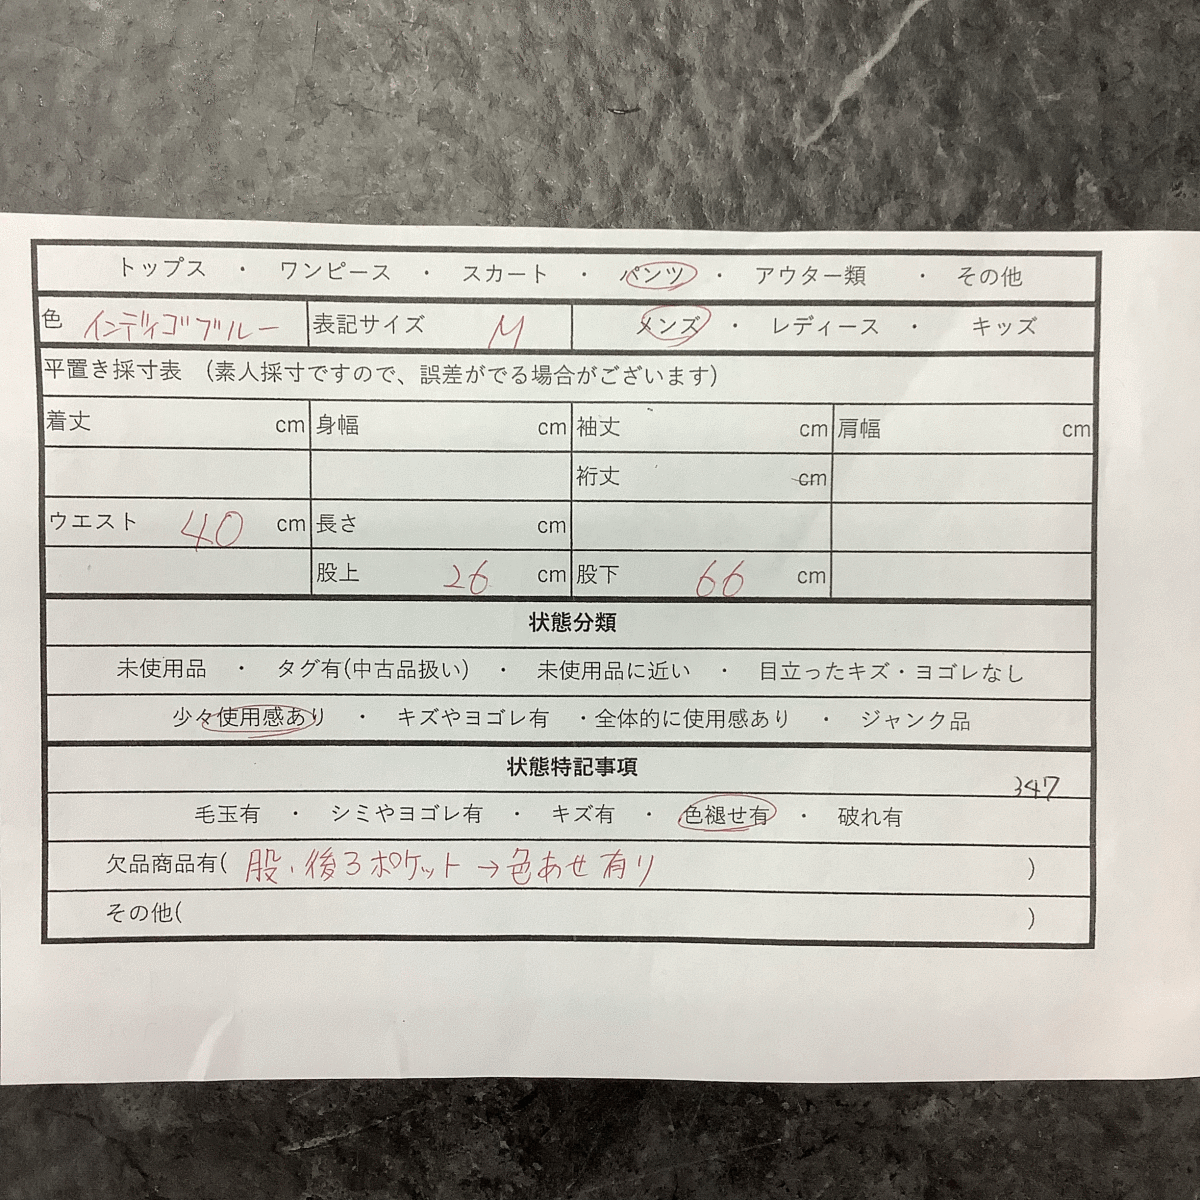 トップス ・ ワンピース ・ スカート ・ パンツ ・ アウター類 ・ その他
色 インディゴブルー 表記サイズ M メンズ ・ レディース ・ キッズ
平置き採寸表 （素人採寸ですので、誤差がでる場合がございます）
着丈 cm 身幅 cm 袖丈 cm 肩幅 cm
裄丈 cm
ウエスト 40 cm 長さ cm
股上 26 cm 股下 66 cm
状態分類
未使用品 ・ タグ有(中古品扱い) ・ 未使用品に近い ・ 目立ったキズ・ヨゴレなし
少々使用感あり ・ キズやヨゴレ有 ・全体的に使用感あり ・ ジャンク品
状態特記事項
347
毛玉有 ・ シミやヨゴレ有 ・ キズ有 ・ 色褪せ有 ・ 破れ有
欠品商品有( 股・後ろポケット→色あせ有り )
その他( )